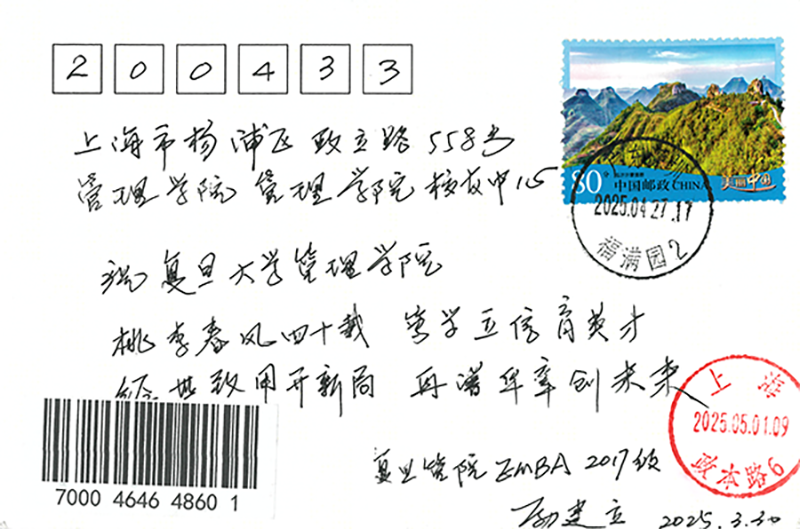 200433
80分 中国邮政 CHINA 美丽中国
2025.04.27.17
福满园2
上海市杨浦区政立路558号
管理学院管理学院校友中心
祝复旦大学管理学院
桃李春风四十载 笃学立信育英才
经世致用开新局 再谱华章创未来
上海
2025.05.01.09
政本路6
复旦管院EMBA 2017级
建立 2025.3.30
7000 4646 4860 1